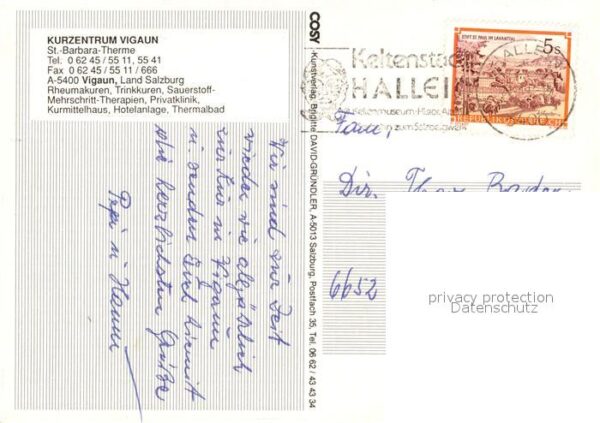 KURZENTRUM VIGAUN
St.-Barbara-Therme
Tel. 0 62 45 / 55 11, 55 41
Fax 0 62 45 / 55 11 / 666
A-5400 Vigaun, Land Salzburg
Rheumakuren, Trinkkuren, Sauerstoff-
Mehrschritt-Therapien, Privatklinik,
Kurmittelhaus, Hotelanlage, Thermalbad
Wir sind zur Zeit
wieder wie alljährlich
zur Kur in Vigaun
u. senden Euch hiermit
die herzlichsten Grüße
Pepi u. Hanni
COSY -Kunstverlag, Brigitte DAVID-GRÜNDLER, A-5013 Salzburg, Postfach 35, Tel. 06 62 / 43 43 34
Keltenstadt
HALLEIN
Keltenmuseum
zum Salzbergwerk
STIFT ST. PAUL IM LAVANTTAL
5s
REPUBLIK
HALLEIN
Fam.
Dir.
6652
privacy protection
Datenschutz